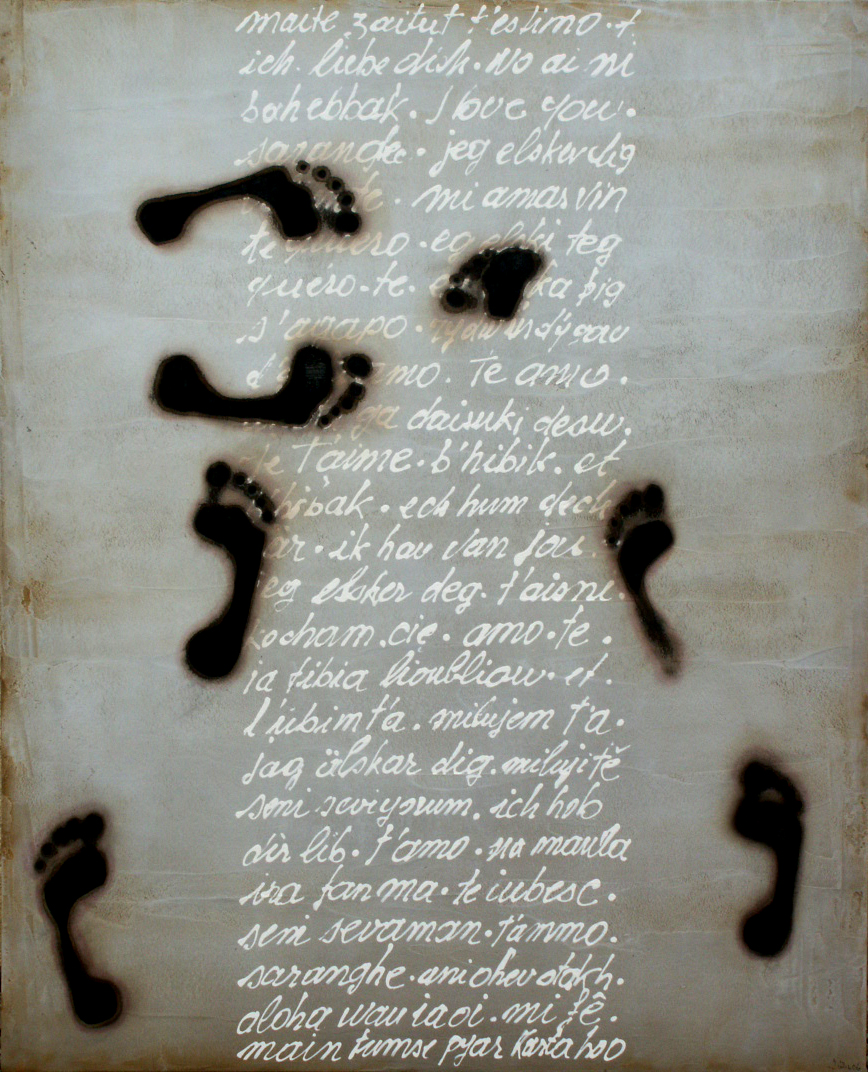 maite zaitut t'estimo · t
ich liebe dich · wo ai ni
bahebbak · I love you ·
jeg elsker dig
te · mi amas vin
te quiero · eg elski teg
quéro-te · ka þig
s'agapo ·
amo. Te amo.
ga daisuki desu.
Je T'aime · b'hibik. et
hibbak · ech hun dech
ar · ik hou van jou.
jeg elsker deg. t'aisni.
kocham.cię. amo-te.
ia tibia lioubliou. et.
l'úbim ťa. milujem ťa.
jag älskar dig. miluji tě
seni seviyorum. ich hob
dir lib. t'amo. na maula
ina fan ma. te iubesc.
seni sevaman. t'ânmo.
saranghe. ani ohev otakh.
aloha wau ia oi. mi
main tumse pyar karta hoo